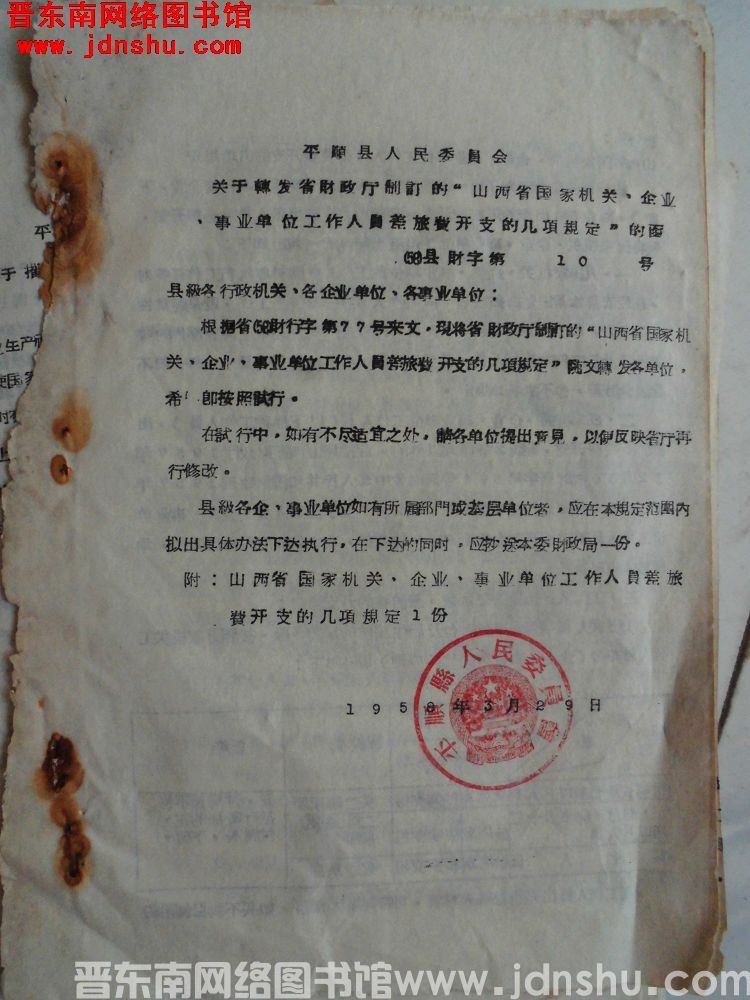 晋东南网络图书馆
www.jdnshu.com
平順县人民委員会
关于轉发省財政厅制訂的“山西省国家机关、企业
、事业单位工作人員差旅費开支的几項規定”的函
(58)县財字第 10 号
县級各行政机关、各企业单位、各事业单位：
根据省(58)財行字第77号来文，現将省財政厅制訂的“山西省国家机
关、企业、事业单位工作人員差旅費开支的几項規定”随文轉发各单位，
希 即按照試行。
在試行中，如有不尽适宜之处，請各单位提出意見，以便反映省厅再
行修改。
县級各企、事业单位如有所属部門或基层单位者，应在本規定范圍内
拟出具体办法下达执行，在下达的同时，应抄送本委財政局一份。
附：山西省国家机关、企业、事业单位工作人員差旅
費开支的几項規定1份
1958年3月29日
平順縣人民委員會
平
于
生产
国家
时
晋东南网络图书馆www.jdnshu.com